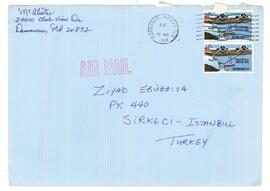 McAlister
24600 Club View Dr.
Damascus, Md 20872
PM
AIR MAIL
ZIYAD EBÜZZIYA
PK 440
SIRKECI - ISTANBUL
TURKEY